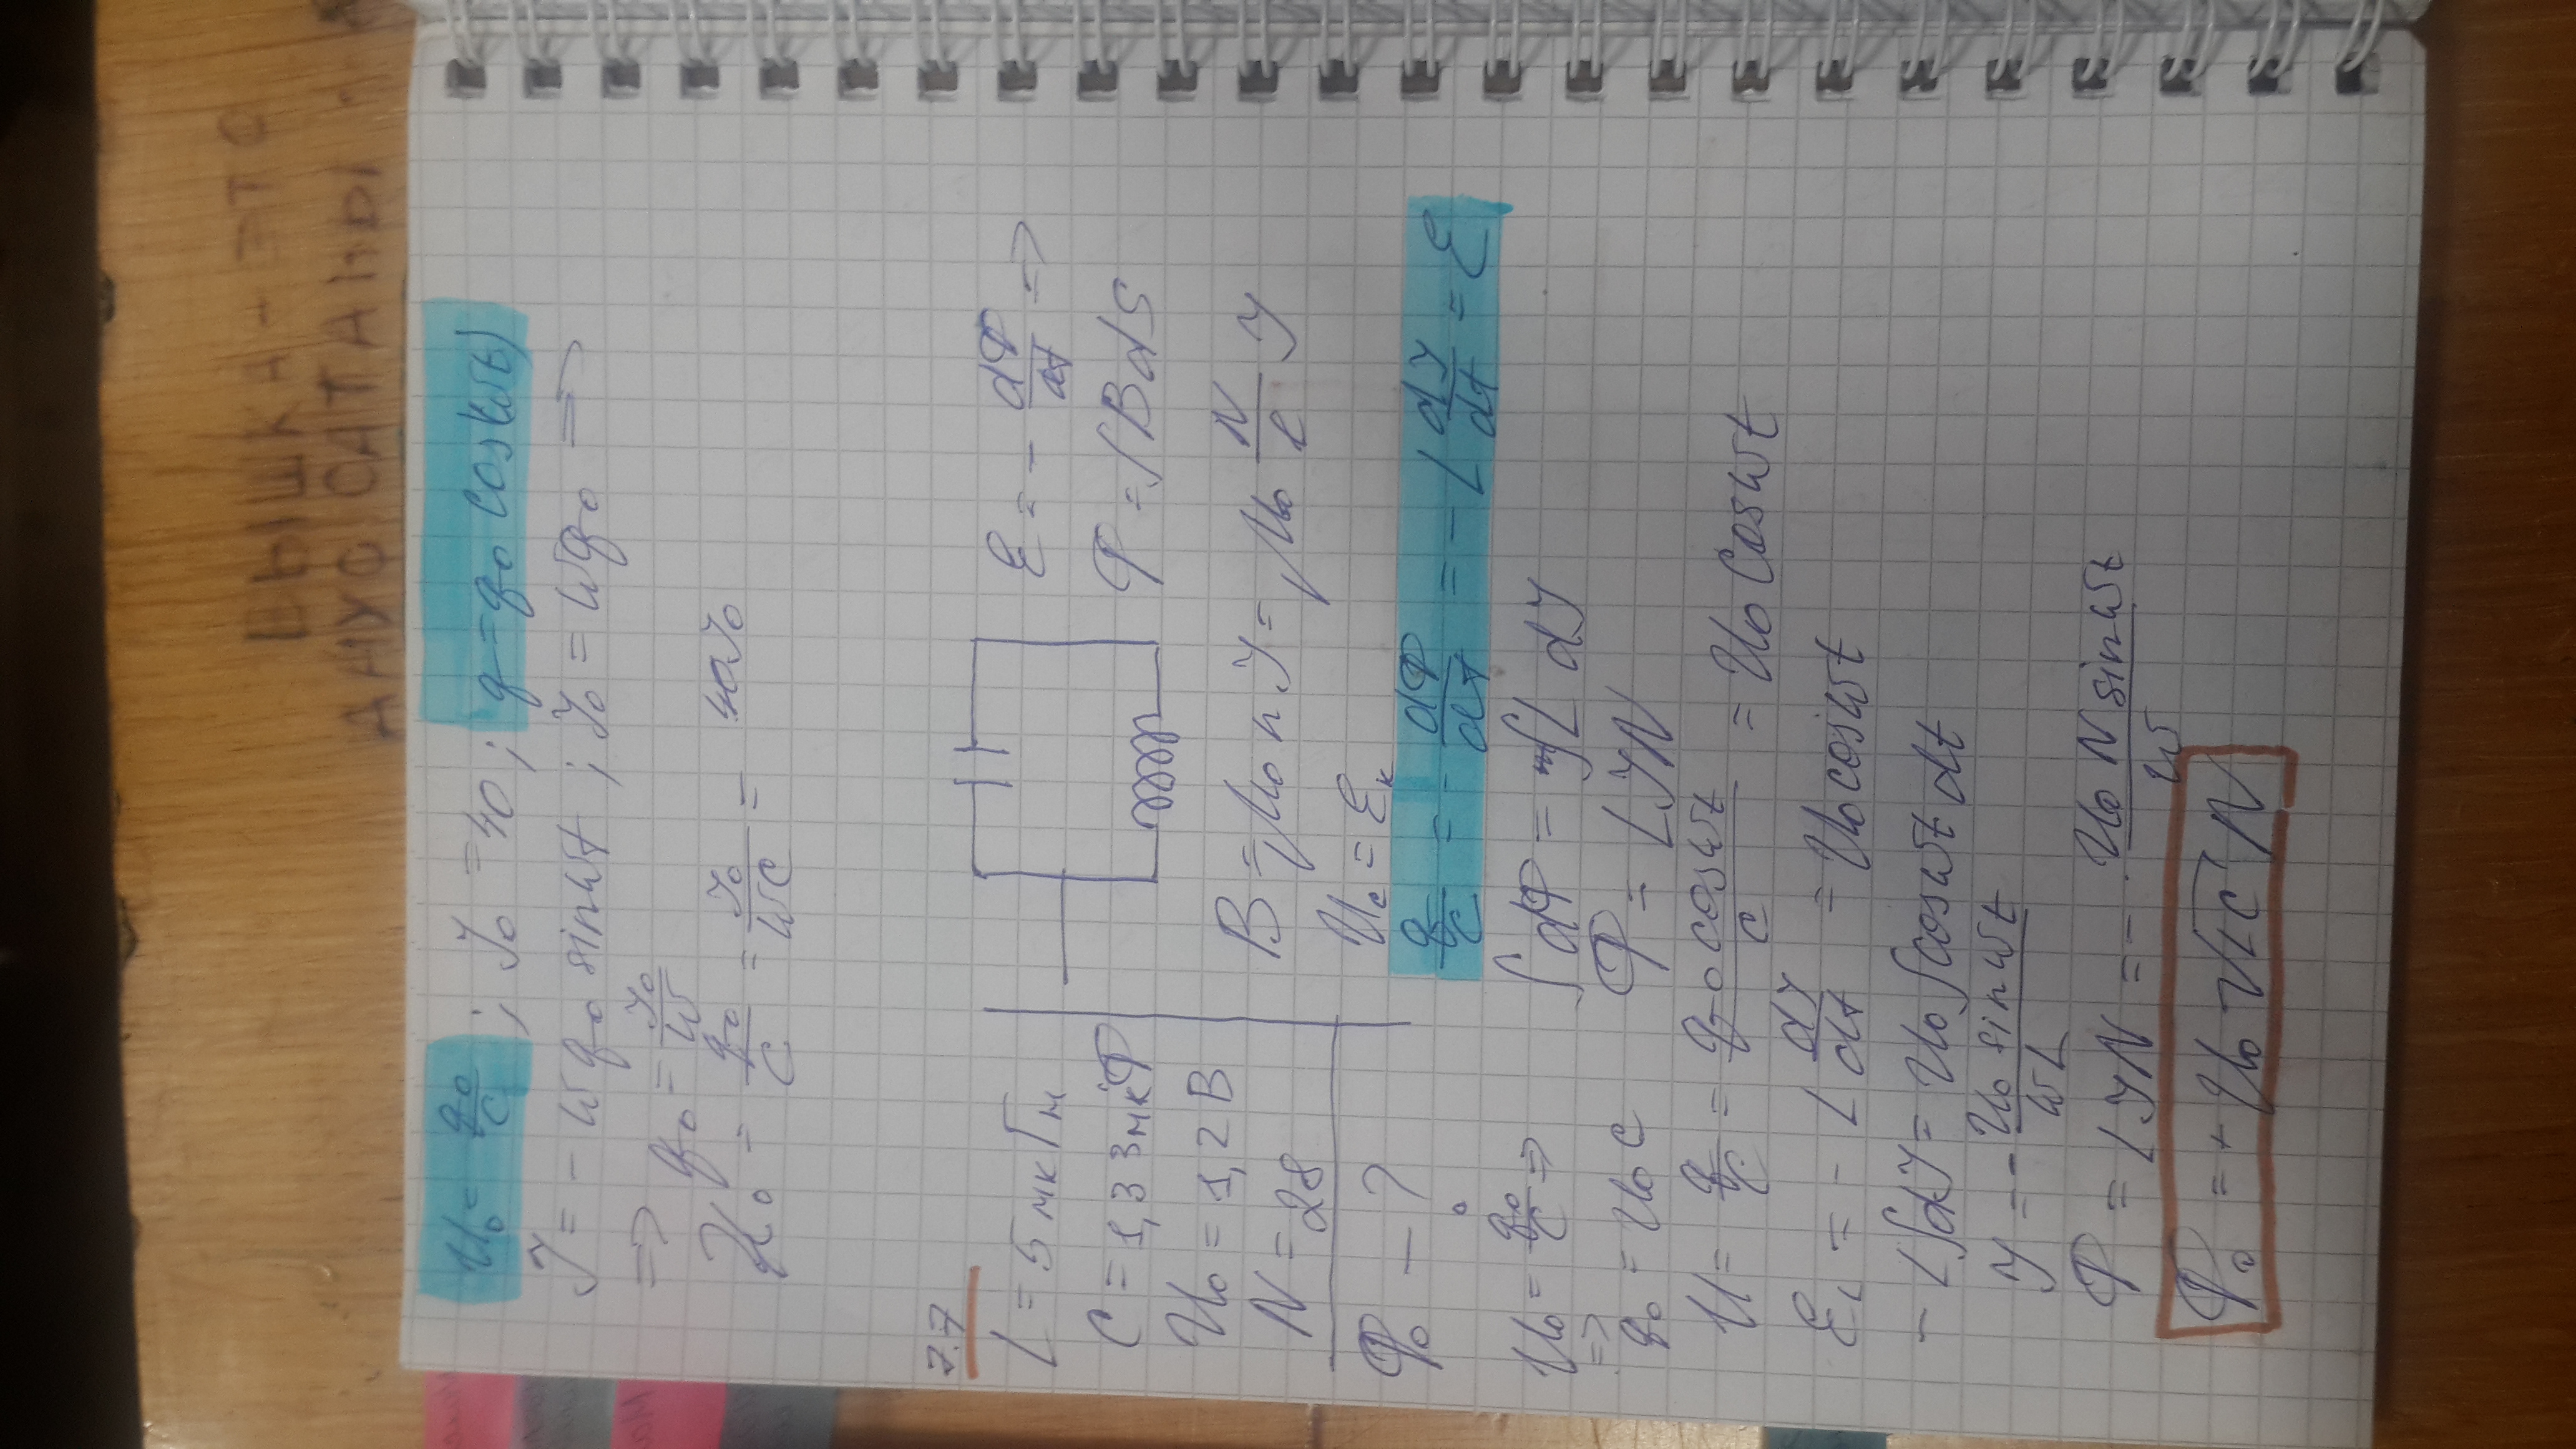 ВЫШКА - ЭТО
АНУС САТАНЫ
U₀ = q₀/C ; J₀ = 40 ; q = q₀ cos(ωt)
J = - ω q₀ sin ωt ; J₀ = ωq₀ =>
=> q₀ = J₀/ω
U₀ = q₀/C = J₀/ωC = 40J₀
7.7
L = 5 мкГн
C = 1,33мкФ
U₀ = 1,2 В
N = 28
Ф₀ - ?
ℰ = - dФ/dt =>
Ф = ∫BdS
B = μ₀ n J = μ₀ N/ℓ J
Uc = ℰк
q/C = - dФ/dt = - L dJ/dt = ℰ
U₀ = q₀/C =>
=> q₀ = U₀C
∫dФ = ∫L dJ
Ф = LJN
U = q/C = q₀ cosωt/C = U₀ cosωt
ℰL = - L dJ/dt = U₀ cosωt
- L∫dJ = U₀ ∫cosωt dt
J = - U₀ sinωt/ωL
Ф = LJN = - U₀ N sinωt/ω
Ф₀ = + U₀ √LC N